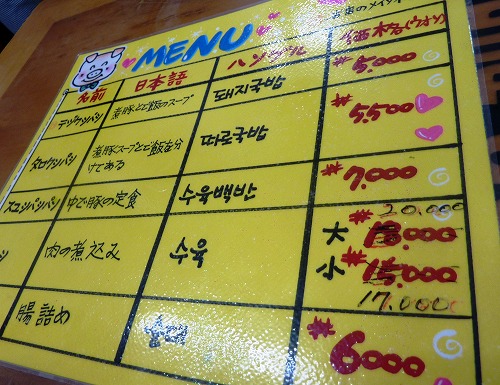 MENU
名前 日本語 ハングル 価格(ウォン)
テジクッパ 煮豚とご飯のスープ 돼지국밥 ₩5.000
煮豚スープとご飯を分けてある 따로국밥 ₩5.500
中で豚の定食 수육백반 ₩7.000
肉の煮込み 수육 大 ₩ 20.000
小 ₩ 15.000
17.000
腸詰め 순대 ₩6000